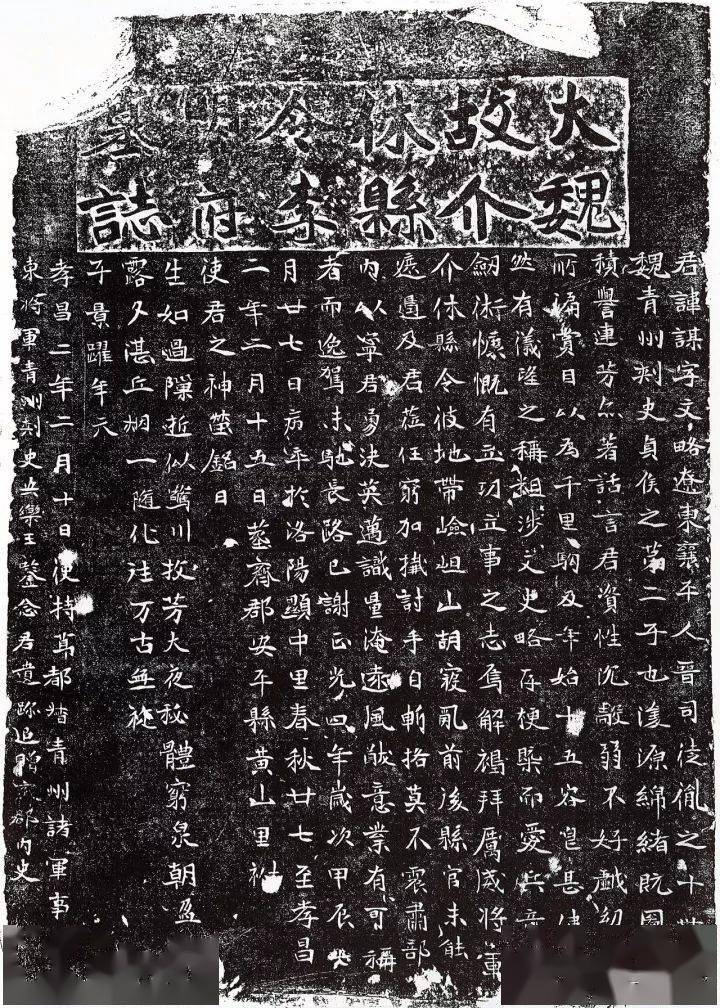 大魏
故介
休縣
令李
明府
墓誌
君諱謀字文略遼東襄平人晉司徒胤之十世
魏青州刺史貞侯之第二子也濬源綿緒既圖
積譽連芳亦著話言君資性沉毅弱不好戲幼
所誦賞目以為千里駒及年始十五容皃甚偉
然有儀望之稱粗涉文史略存梗槩而愛兵音
劒術慷慨有立功立事之志焉解褐拜厲威將軍
介休縣令彼地帶嶮岨山胡寇亂前後縣官未能
遮遏及君莅任窮加擒討手自斬挌莫不震肅部
內以寧君勇決英邁識量淹遠風猷意業有可稱
者而逸駕未馳長路已謝正光四年歲次甲辰
月廿七日病卒於洛陽顯中里春秋廿七至孝昌
二年二月十五日葬齊郡安平縣黃山里祔
使君之神塋銘曰
生如過隟逝似驚川投芳大夜秘體窮泉朝盈
露夕湛丘烟一隨化往万古無旋
子景躍年六
孝昌二年二月十日使持節都督青州諸軍事
東將軍青州刺史安樂王鑒念君遺跡追贈 郡內史